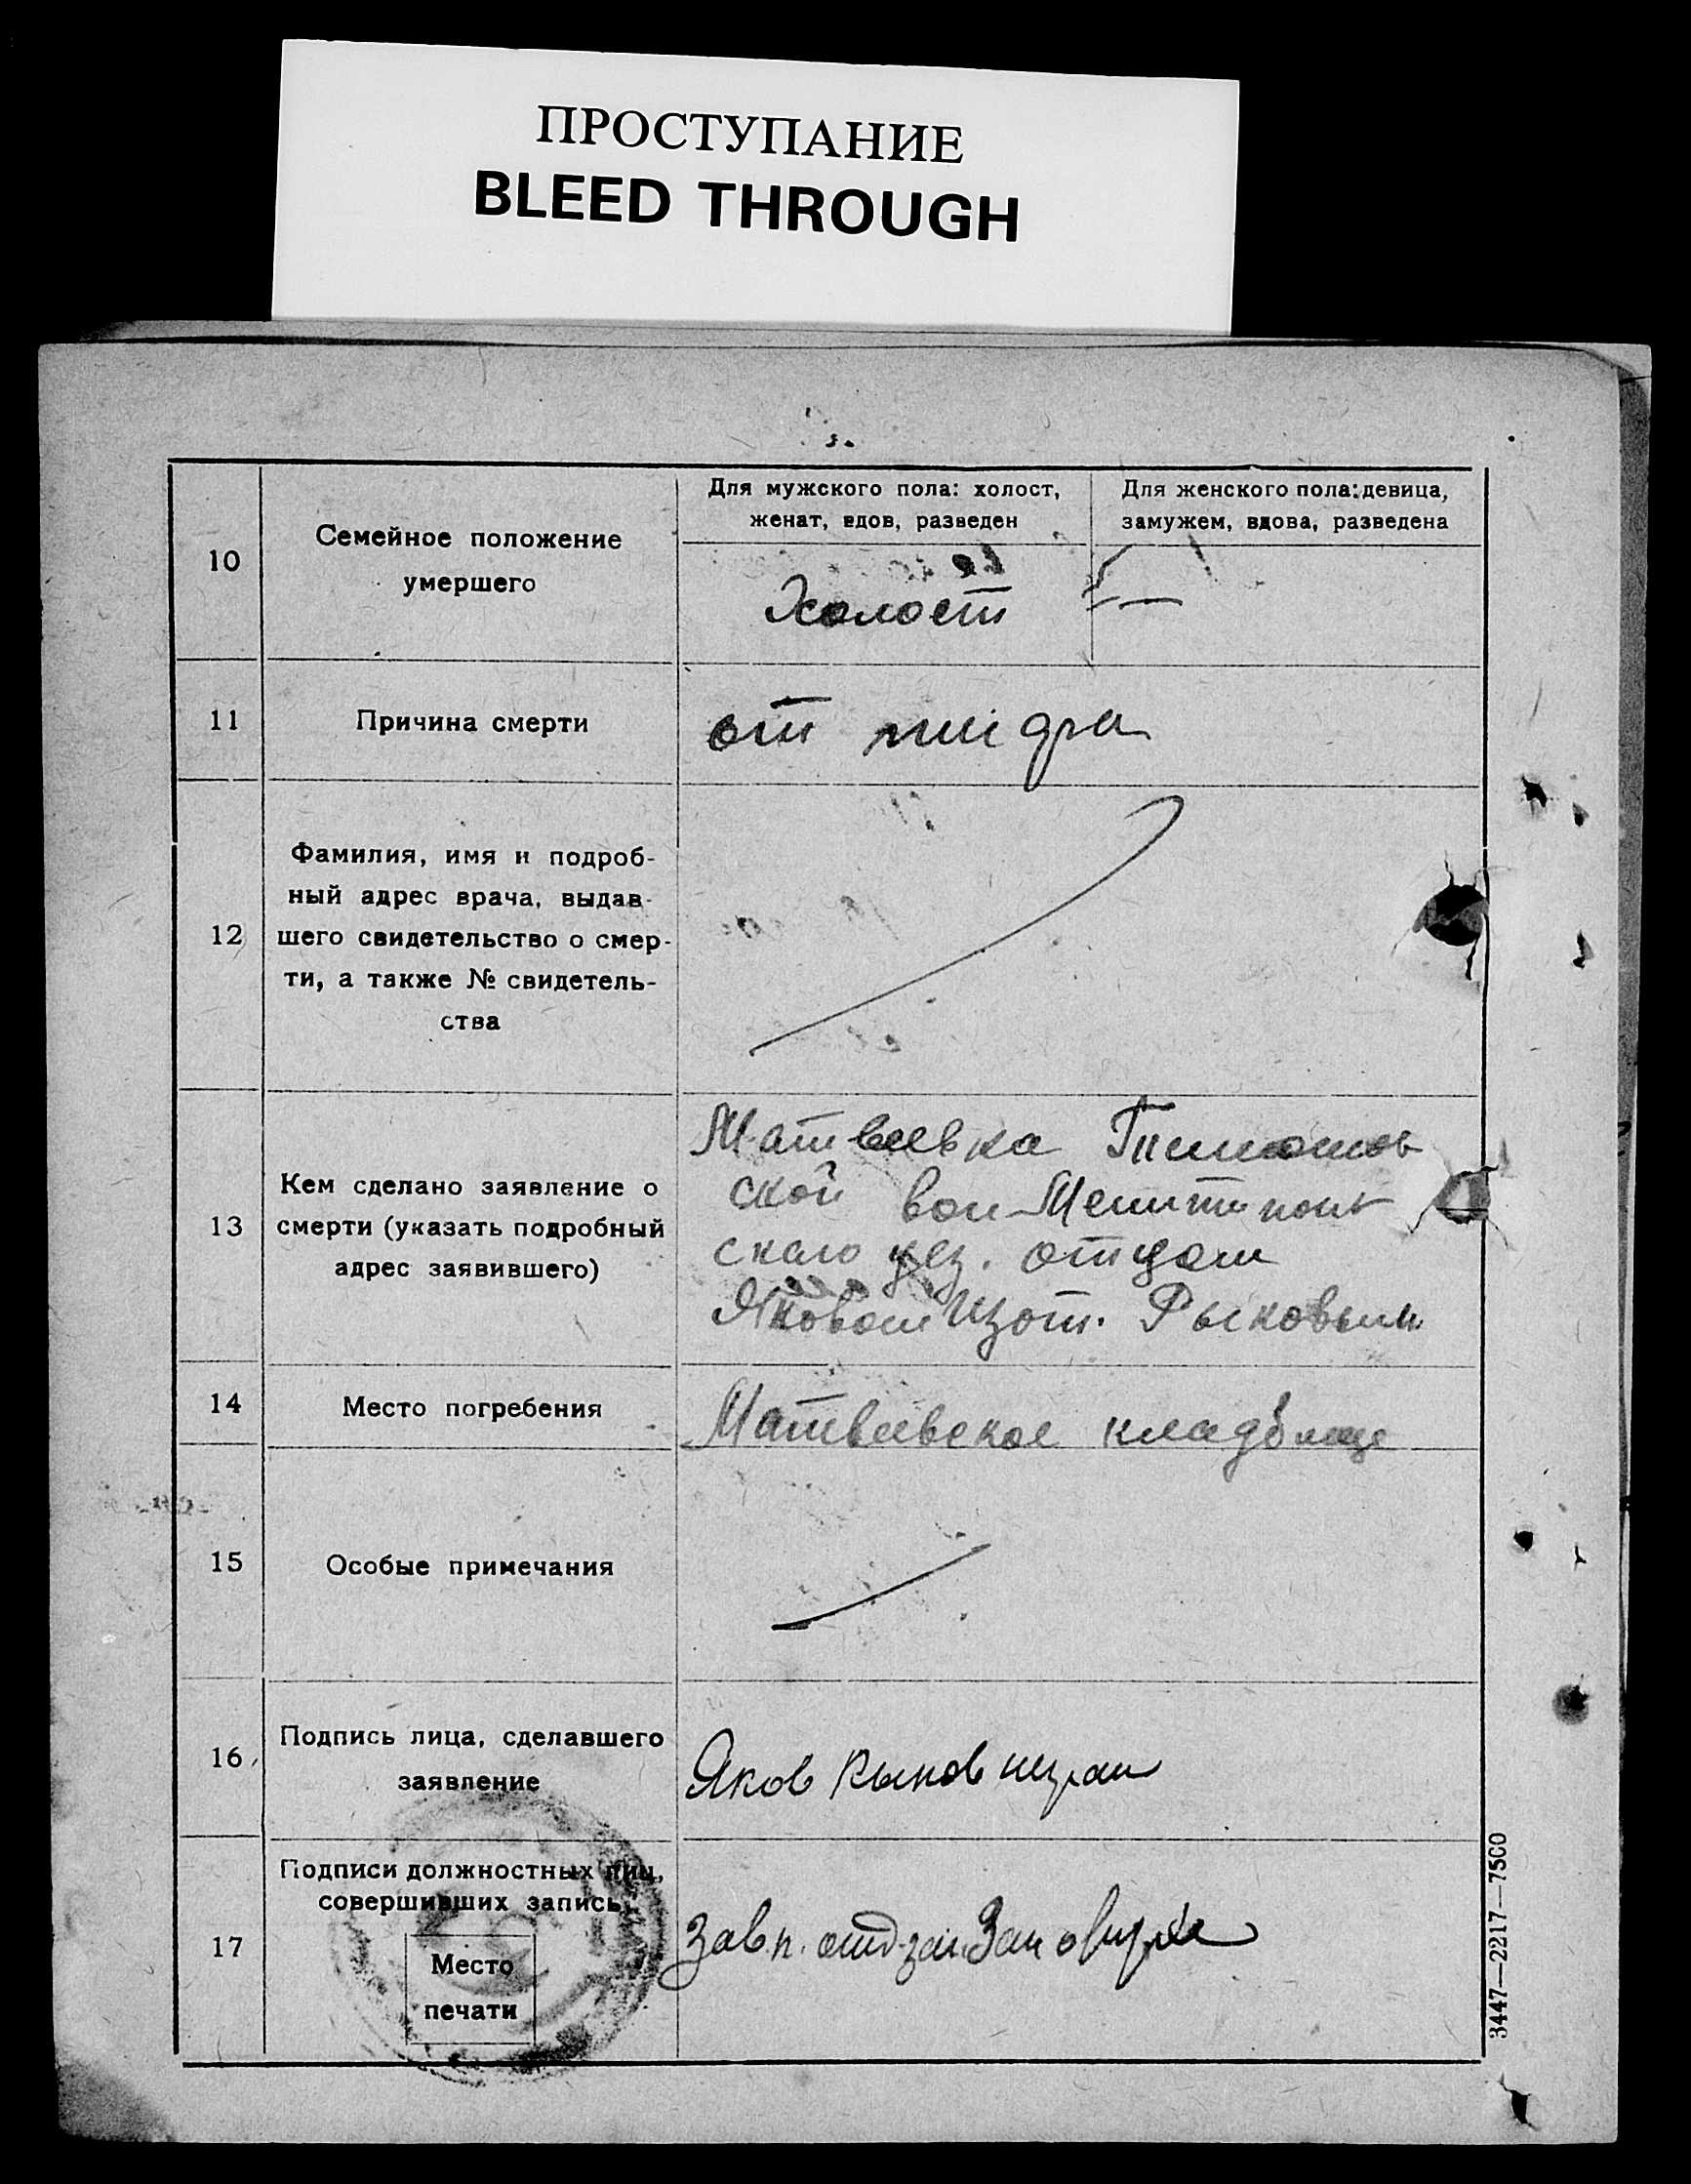 ПРОСТУПАНИЕ
BLEED THROUGH
10
Семейное положение
умершего
Для мужского пола: холост,
женат, вдов, разведен
Для женского пола: девица,
замужем, вдова, разведена
Холост
11
Причина смерти
от
12
Фамилия, имя и подроб-
ный адрес врача, выдав-
шего свидетельство о смер-
ти, а также № свидетель-
ства
13
Кем сделано заявление о
смерти (указать подробный
адрес заявившего)
Матвеевка
ской вол Мелитополь
скаго уез. отцом
Яковом Изот. Рыковым
14
Место погребения
Матвеевское кладбище
15
Особые примечания
16
Подпись лица, сделавшего
заявление
Яков Рыков
17
Подписи должностных лиц,
совершивших запись
Место
печати
Зав.п.
3447—2217—7500